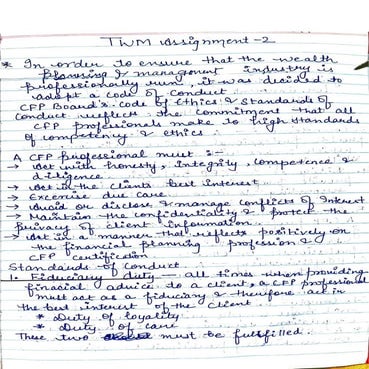 TWM Assignment -2
* In order to ensure that the wealth
planning & management industry is
professionally run, it was decided to
adopt a Code of Conduct
CFP Board's code of Ethics & Standards of
Conduct reflects the commitment that all
CFP professionals make to high standards
of competency & ethics.
A CFP professional must :-
→ Act with honesty, integrity, competence &
diligence
→ Act in the clients best interest
→ Exercise due care
→ Avoid or disclose & manage conflicts of Interest
→ Maintain the confidentiality & protect the
privacy of client information
→ Act in a manner that reflects positively on
the financial planning profession &
CFP certification
Standards of Conduct
1. Fiduciary duty - all times when providing
finacial advice to a client, a CFP professional
must act as a fiduciary & therefore act in
the best interest of the Client.
* Duty of loyality
* Duty of care
These two must be fullfilled.